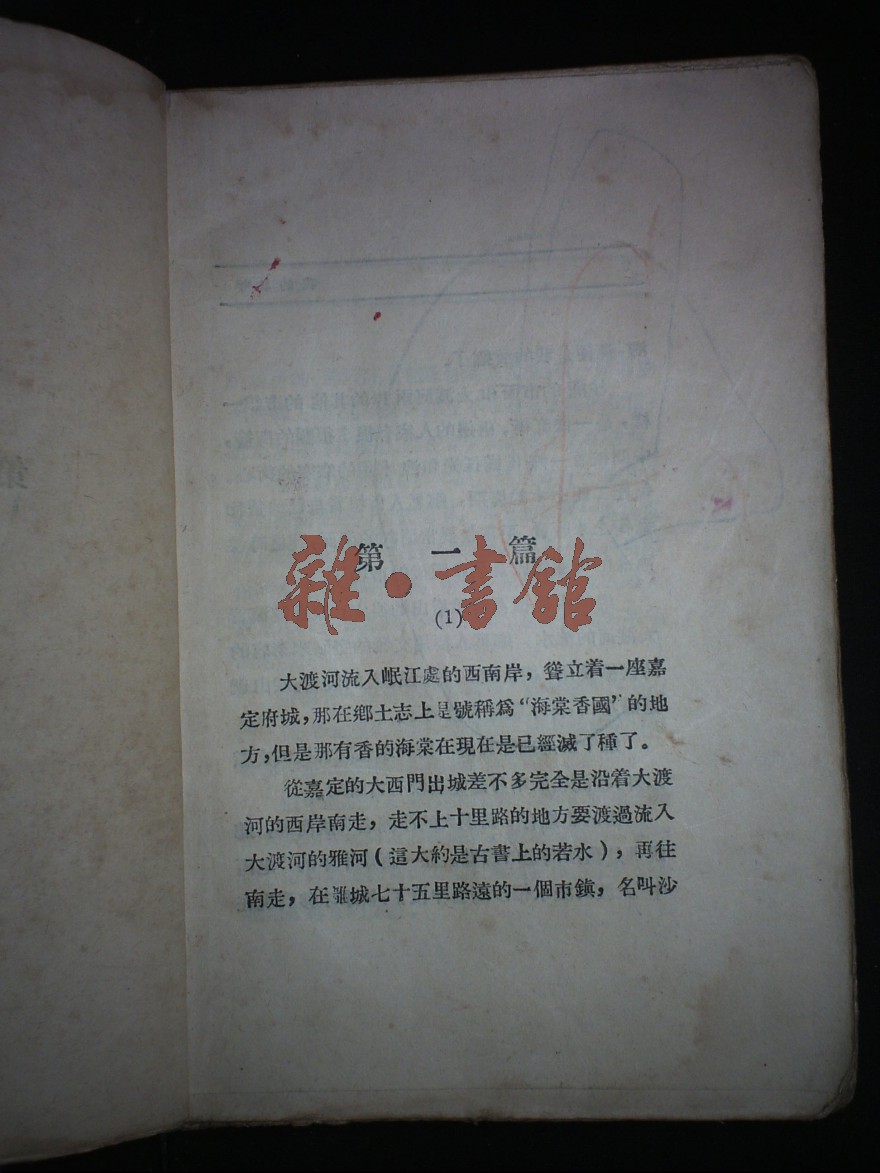 第一篇
雜·書館
(1)
大渡河流入岷江處的西南岸，聳立着一座嘉
定府城，那在鄉土志上是號稱爲“海棠香國”的地
方，但是那有香的海棠在現在是已經滅了種了。
從嘉定的大西門出城差不多完全是沿着大渡
河的西岸南走，走不上十里路的地方要渡過流入
大渡河的雅河（這大約是古書上的若水），再往
南走，在離城七十五里路遠的一個市鎮，名叫沙